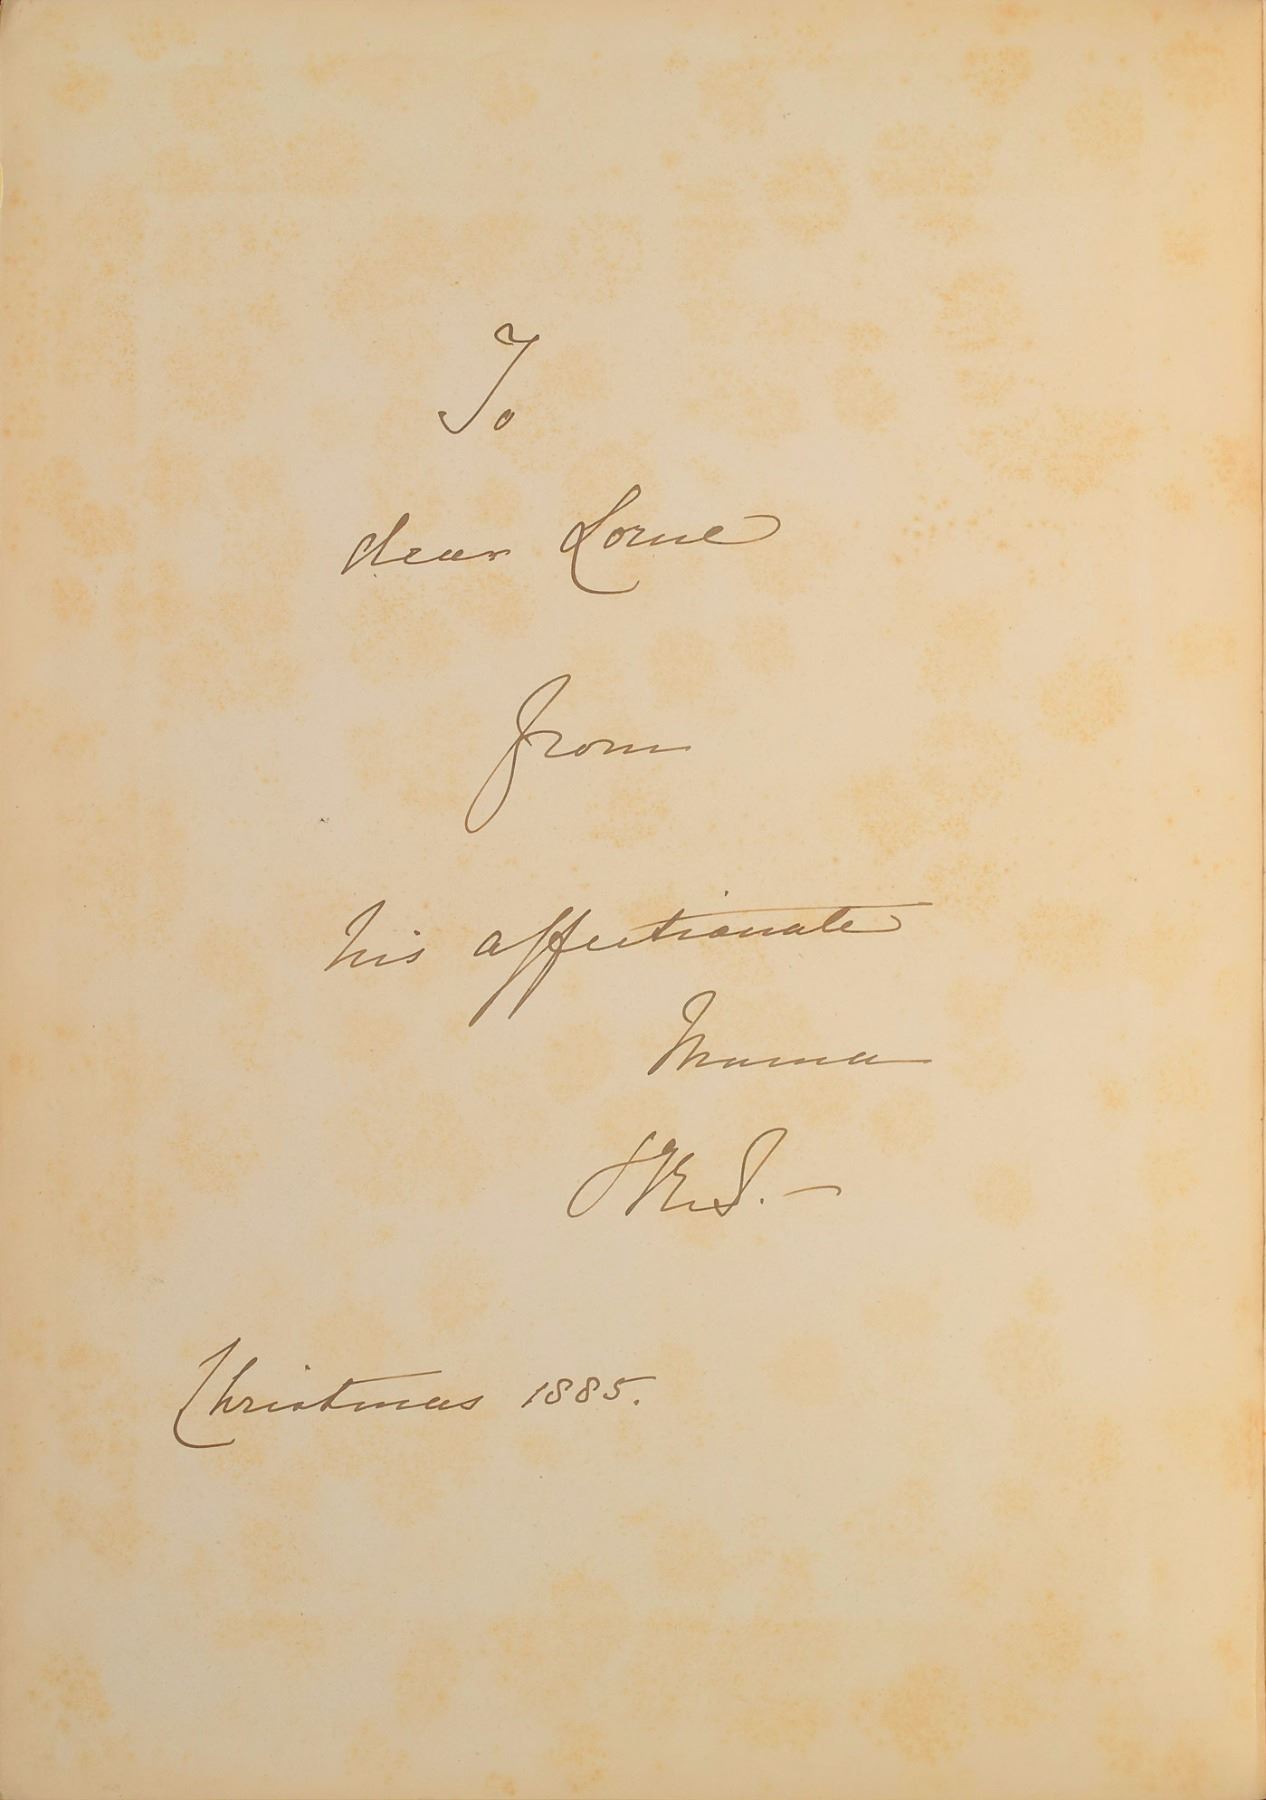 To
dear Lorne
from
his affectionate
Mama
Christmas 1885.